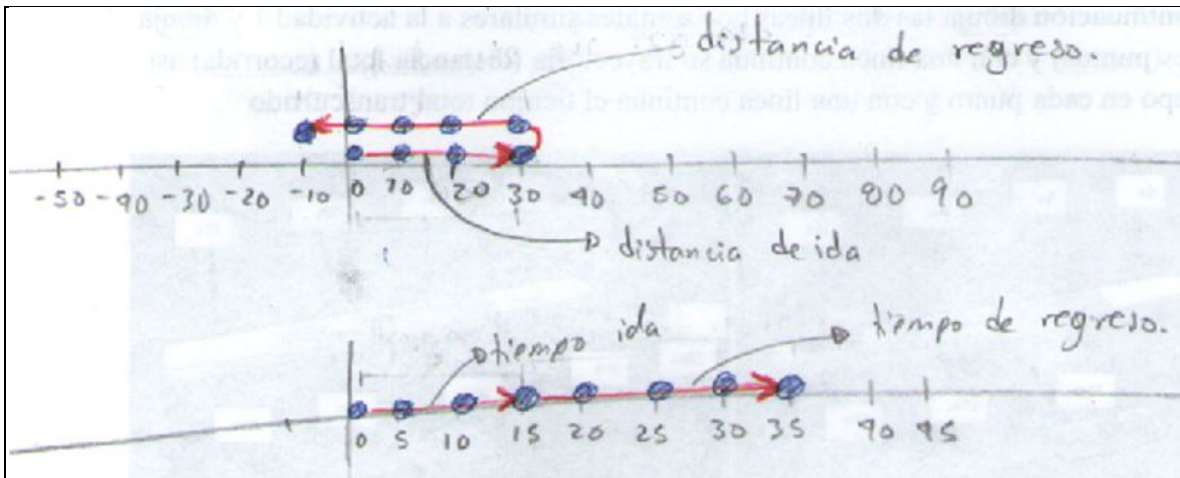 distancia de regreso.
-50 -40 -30 -20 -10 0 10 20 30 40 50 60 70 80 90
distancia de ida
tiempo ida
tiempo de regreso.
0 5 10 15 20 25 30 35 40 45